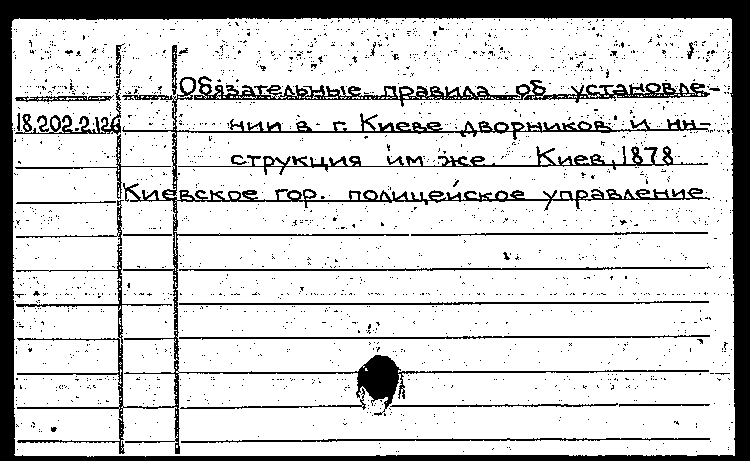 Обязательные правила об установле-
18.202.2.126 нии в г. Киеве дворников и ин-
струкция им же. Киев, 1878
Киевское гор. полицейское управление